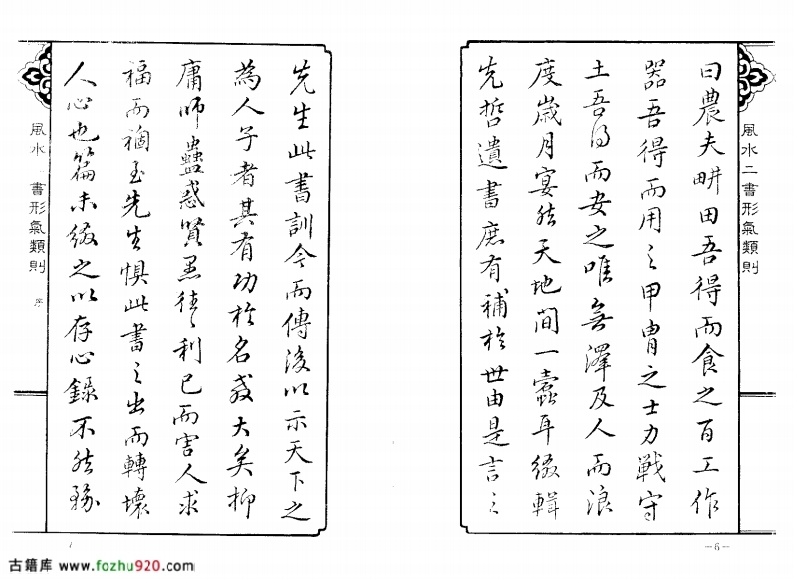 風水二書形氣類則
曰農夫畊田吾得而食之百工作
器吾得而用之甲冑之士力戰守
土吾得而安之唯無澤及人而浪
度歲月宴然天地間一蠹耳綴輯
先哲遺書庶有補於世由是言之
—6—
先生此書訓今而傳後以示天下之
為人子者其有功於名教大矣抑
庸師蠱惑賢愚徃〻利己而害人求
福而禍至先生懼此書之出而轉壞
人心也篇末綴之以存心錄不然豫
風水 書形氣類則 序
古籍库 www.fozhu920.com